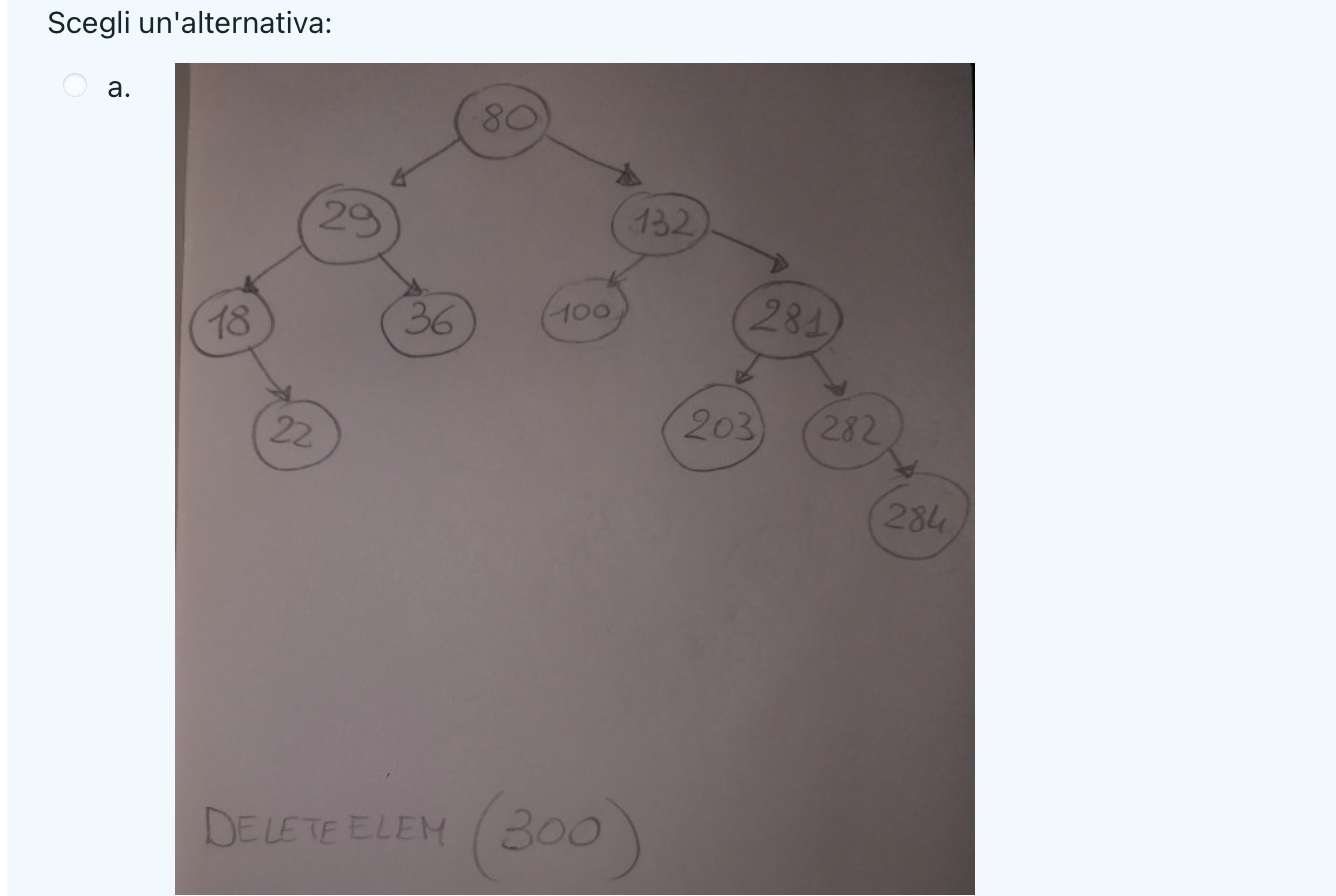 Scegli un'alternativa:
a.
80
29 132
18 36 100 281
22 203 282
284
DELETE ELEM (300)